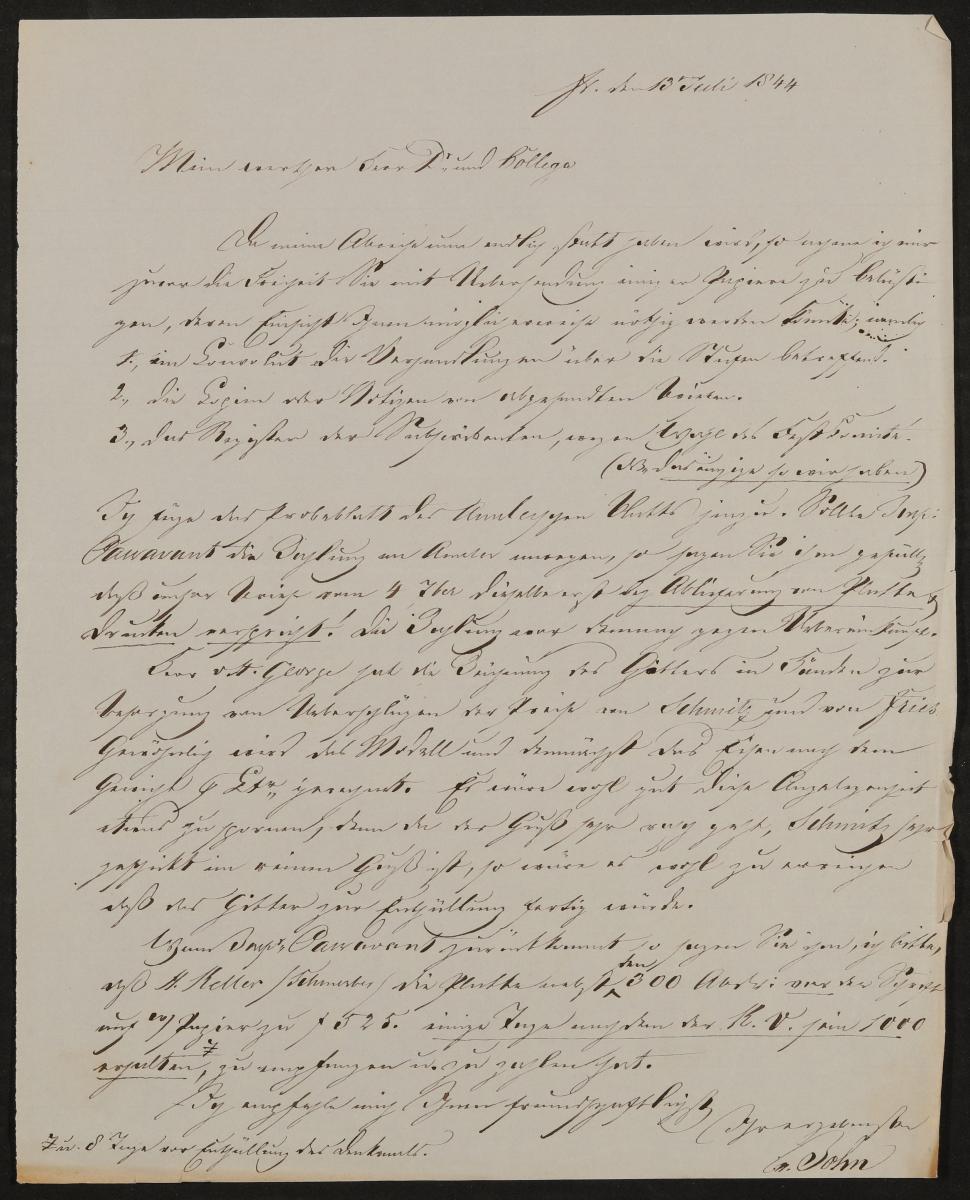 Fr. den 13 Juli 1844
Mein werther Herr Dr. und Kollega
Da meine Abreise nun endlich statt haben wird, so nehme ich mir
zuvor die Freiheit Sie mit Uebersendung einiger Papiere zu belästi
gen, deren Einsicht Ihnen möglicherweise nöthig werden könnte; nemlich
1., ein Convolut die Verhandlungen über die Stufen betreffend.
2., die Copien oder Notizen von abgesandten Briefen.
3., das Register der Subscribenten, wegen Wahl des Fest Comité.
(NB. das einzige so wir haben)
Ich füge das Probeblatt des Amslerschen Blatts hinzu. Sollte Insp:
Passavant die Zahlung an Amsler anregen, so sagen Sie ihm gefällg
daß unser Brief vom 4 7ber dieselbe erst bey Ablieferung von Platte &
Drucken verspricht! Die Zahlung war demnach gegen Uebereinkunft.
Herr v. St. George hat die Zeichnung des Gitters in Händen zur
Besorgung von Ueberschlägen der Preise von Schmitz und von Fries
Gewöhnlich wird das Modell und demnächst das Eisen nach dem
Gewicht Ctr. gerechnet. Es wäre wohl gut diese Angelegenheit
etwas zu spornen, denn da der Guß sehr rasch geht, Schmitz sehr
geschickt im reinen Guß ist, so wäre es wohl zu erreichen
daß das Gitter zur Enthüllung fertig würde.
Wenn Insp: Passavant zurückkommt so sagen Sie ihm, ich bitte,
daß H. Keller (Schmerber) die Platte nebst den 300 Abdr: vor der Schrift
auf Papier zu f 525. einige Tage nachdem der K. V. sein 1000
erhalten, zu empfangen u. zu zahlen hat.
Ich empfehle mich Ihnen freundschaftlichst
Ihr ergebenster
v. John
7 u. 8 Tage vor Enthüllung des Denkmals.